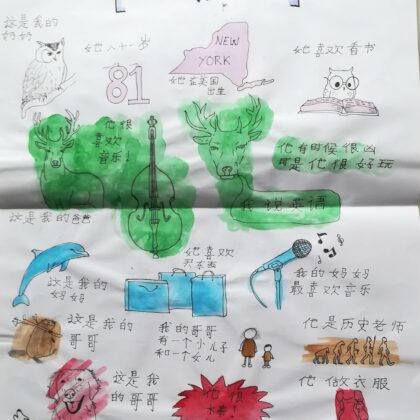 这是我的
她八十一岁
81
NEW
YORK
她在美国
出生
她喜欢看书
他很
喜欢
音乐!
他有时候很凶
可是他很好玩
我说英语
这是我的爸爸
这是我的
妈妈
她喜欢
买东西
我的妈妈
最喜欢音乐
这是我的
哥哥
我的哥哥
有一个小儿子
和一个女儿
他是历史老师
这是我
的哥哥
他很
他做衣服